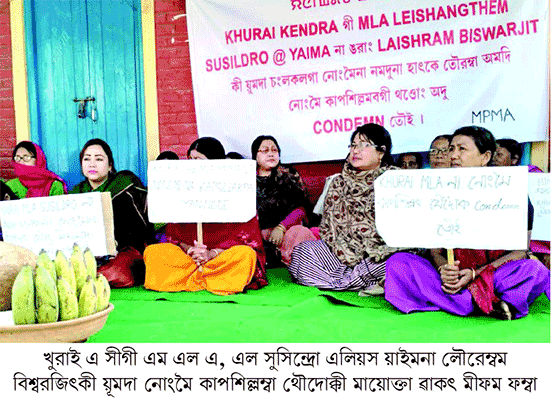 KHURAI KENDRA গী MLA LEISHANGTHEM
SUSILDRO @ YAIMA না ঙরাং LAISHRAM BISWARJIT
কী য়ূমদা চংলকলগা নোংমৈনা নমদুনা হাৎকে তৌরম্বা অমদি
নোংমৈ কাপশিল্লমবগী থওোং অদু
CONDEMN তৌই ।
MPMA
KHURAI MLA না নোংমৈ
কাপশিল্লম্ব থৌদোক condemn
তৌই
খুরাই এ সীগী এম এল এ, এল সুসিন্দ্রো এলিয়স য়াইমনা লৌরেম্বম
বিশ্বরজিৎকী য়ূমদা নোংমৈ কাপশিল্লম্বা থৌদোক্কী মায়োক্তা ৱাকৎ মীফম ফম্বা